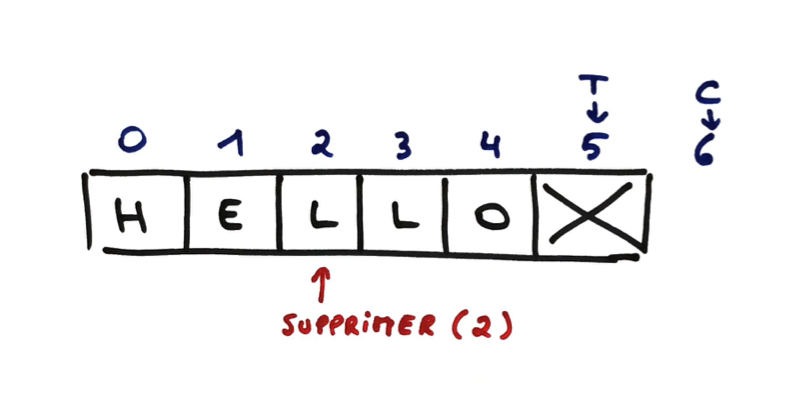 T C
↓ ↓
0 1 2 3 4 5 6
H E L L O X
↑
SUPPRIMER (2)